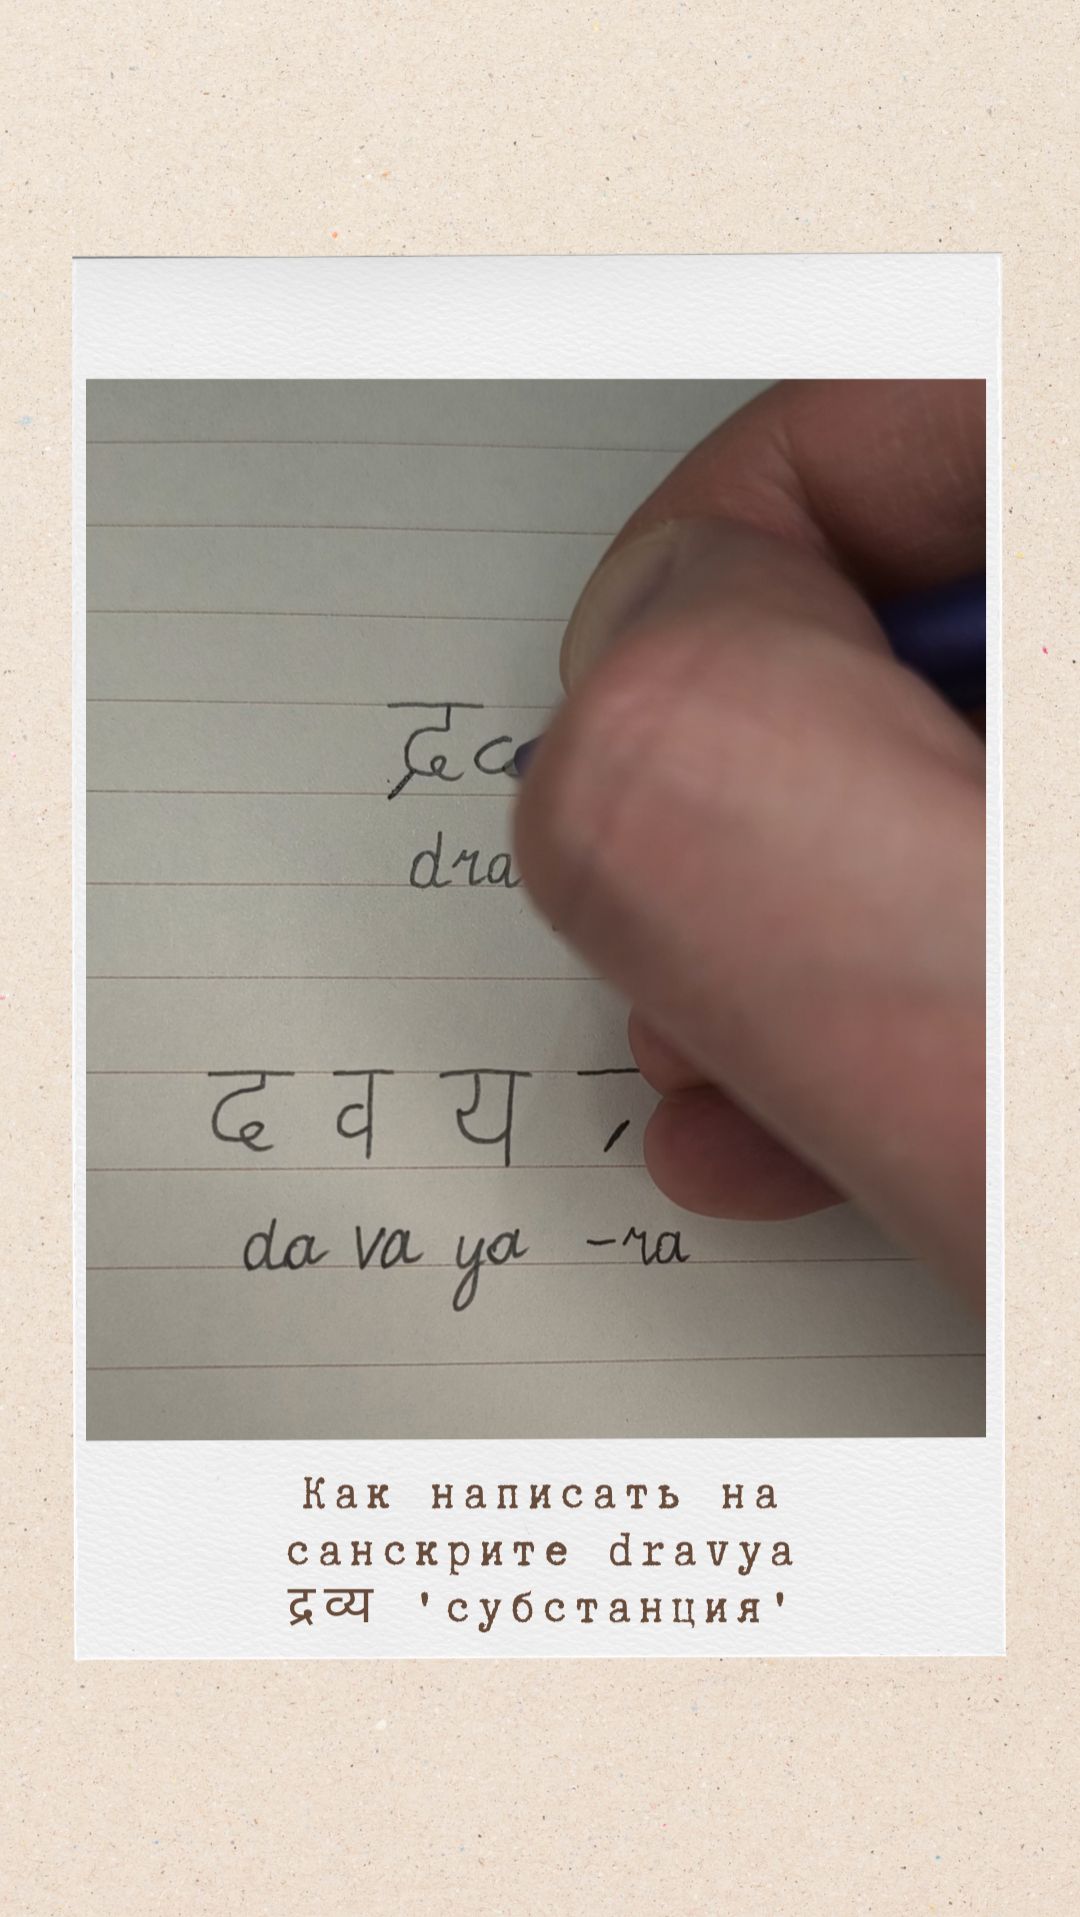 द्रव
dra
द व य ्र
da va ya -ra
Как написать на
санскрите dravya
द्रव्य 'субстанция'